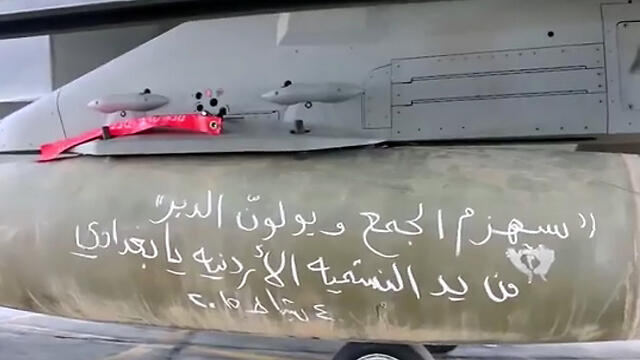 "سيهزم الجمع ويولونّ الدبر"
من يد النشميه الأردنيه يا بغدادي
٤ شباط ٢٠١٥